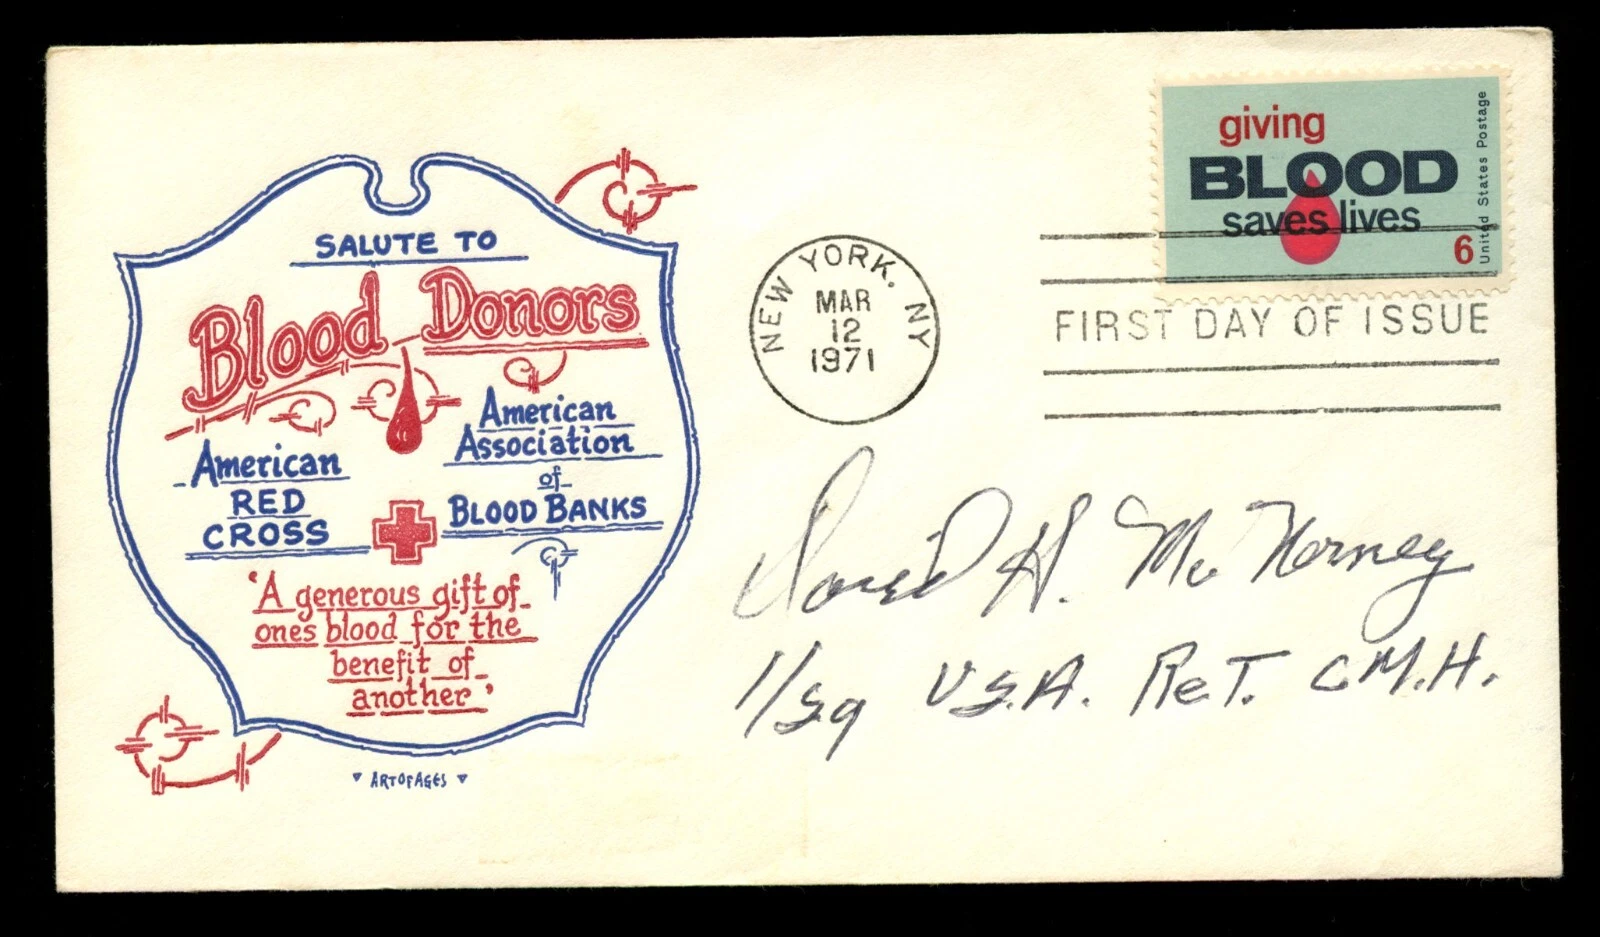 SALUTE TO
Blood Donors
American
RED
CROSS
American
Association
of
BLOOD BANKS
'A generous gift of
ones blood for the
benefit of
another'
ARTOFAGES
NEW YORK, NY
MAR
12
1971
giving
BLOOD
saves lives
6
United States Postage
FIRST DAY OF ISSUE
David H. McNerney
1/Sg U.S.A. ReT. C.M.H.